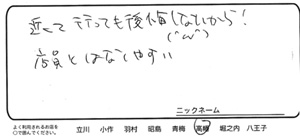 近くて 行っても後悔しないから!
(^ω^)
店員とはなしやすい
ニックネーム
よく利用されるお店を
○で囲んでください。
立川 小作 羽村 昭島 青梅 高幡 堀之内 八王子